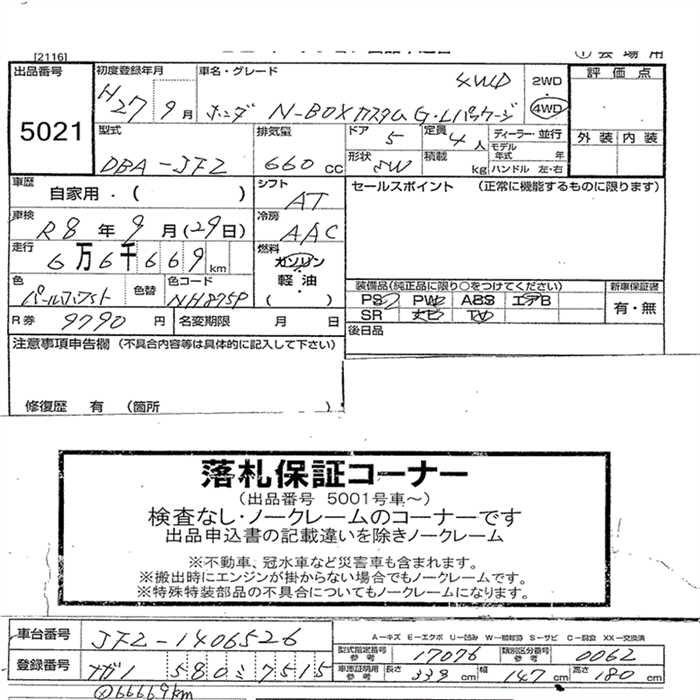 [2116]
出品番号
5021
初度登録年月
H27 9月
車名・グレード
4WD
ホンダ N-BOXカスタム G・Lパッケージ
2WD
・
4WD
評価点
外装 内装
型式
DBA-JF2
排気量
660 cc
ドア 5
定員 4人
形状 5W
積載 kg
ディーラー・並行
モデル年式 年
ハンドル 左・右
車歴
自家用・( )
シフト
AT
セールスポイント (正常に機能するものに限ります)
車検
R8年 9月(29日)
冷房
AAC
走行
6万6千669km
燃料
ガソリン
軽油
( )
色
色替
色コード
NH875P
装備品(純正品に限り○をつけてください)
PS PW ABS エアB
SR ナビ TV
新車保証書
有・無
R券 9790円
名変期限 月 日
後日品
注意事項申告欄 (不具合内容等は具体的に記入して下さい)
修復歴 有 (箇所 )
落札保証コーナー
(出品番号 5001号車~)
検査なし・ノークレームのコーナーです
出品申込書の記載違いを除きノークレーム
※不動車、冠水車など災害車も含まれます。
※搬出時にエンジンが掛からない場合でもノークレームです。
※特殊特装部品の不具合についてもノークレームになります。
車台番号 JF2-1406526
A-キズ E-エクボ U-凹み W-補修跡 S-サビ C-腐食 XX-交換済
型式指定番号参考 17076
類別区分番号参考 0062
登録番号 ナガノ 580 ミ 7515
車庫証明用参考 長さ 339cm 幅 147cm 高さ 180cm
66669km